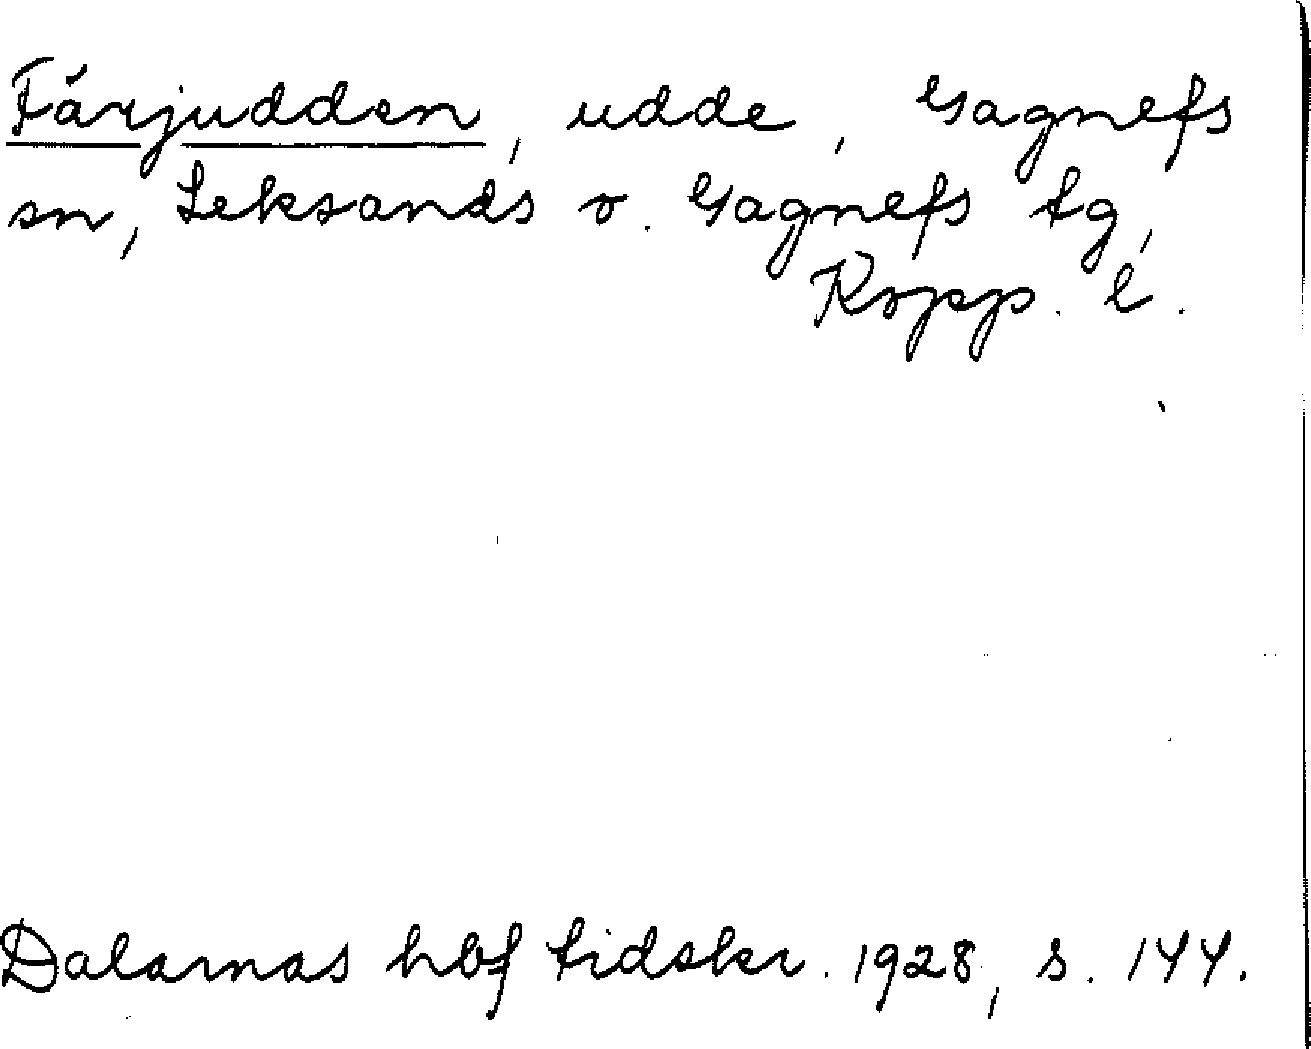 Färjudden, udde, Gagnefs
sn, Leksands o. Gagnefs tg,
Kopp. l.
Dalarnas hbf tidskr. 1928, s. 144.